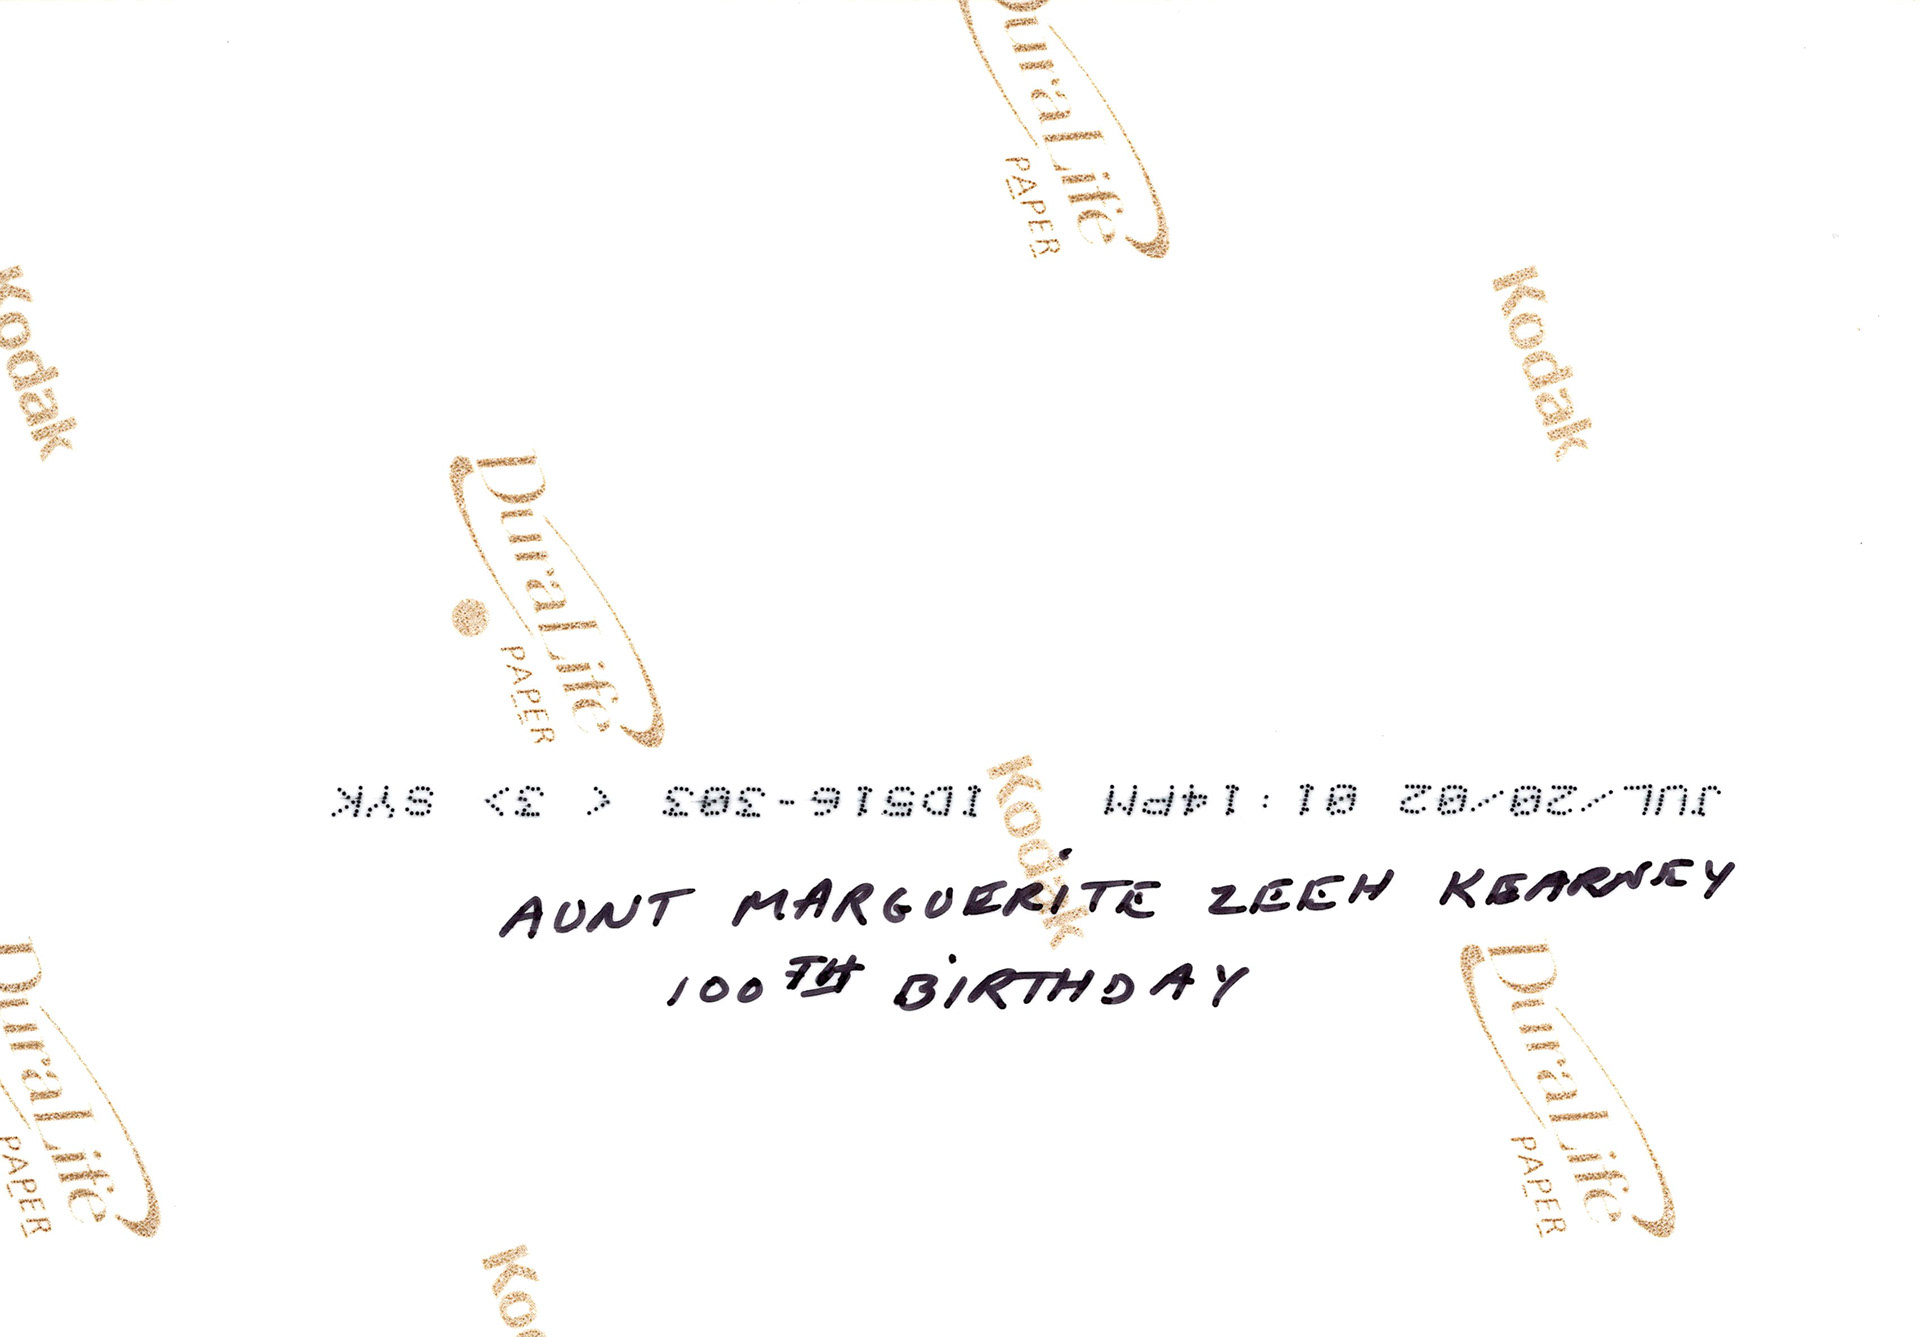 DuraLife
PAPER
Kodak
Kodak
DuraLife
PAPER
JUL/20/02 01:14PM ID516-303 < 3> SYK
Kodak
AUNT MARGUERITE ZEEH KEARNEY
100TH BIRTHDAY
DuraLife
PAPER
DuraLife
PAPER
Ko